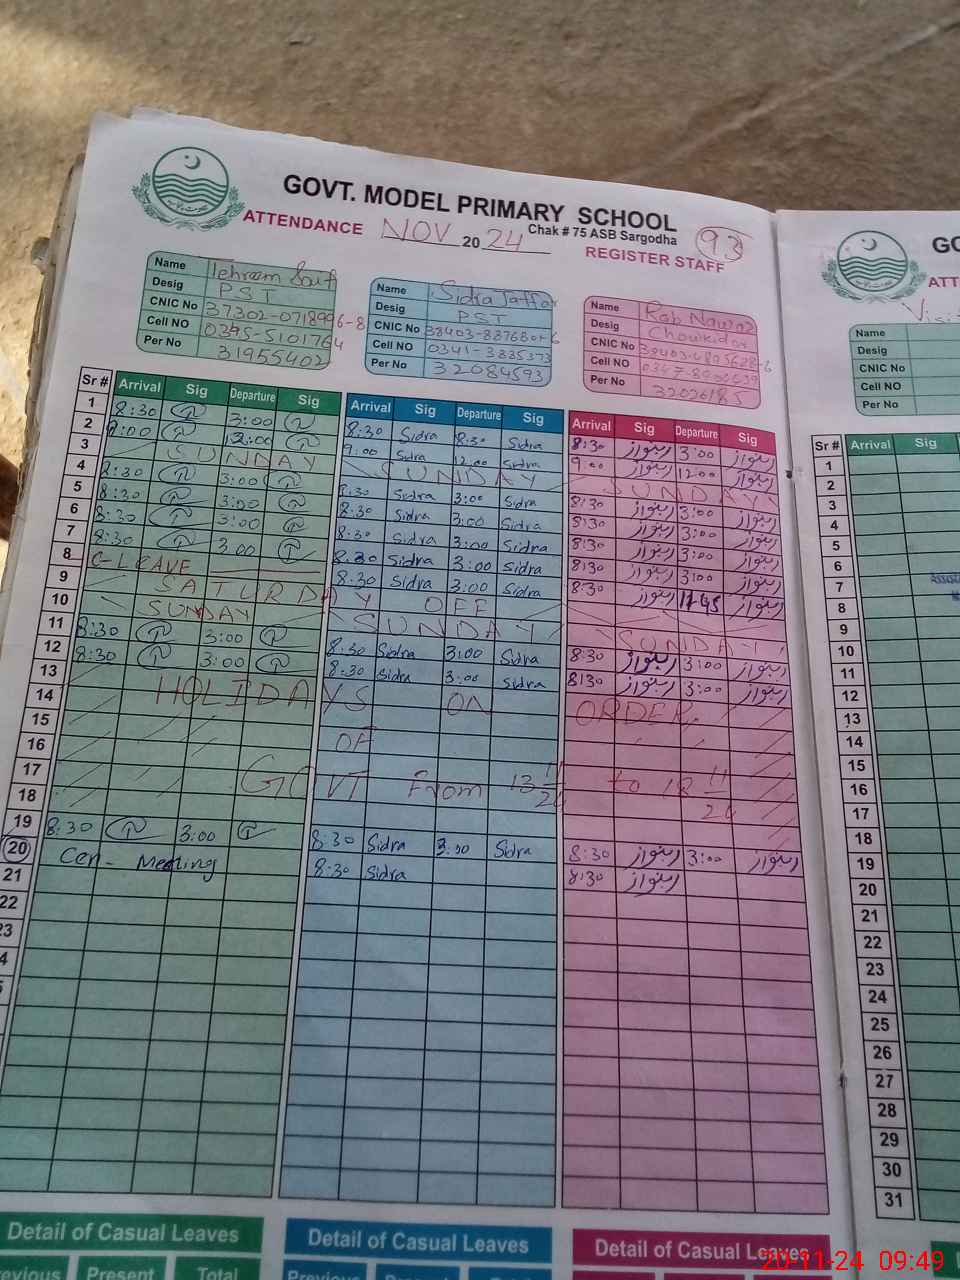 GOVT. MODEL PRIMARY SCHOOL
Chak # 75 ASB Sargodha
ATTENDANCE NOV 2024
REGISTER STAFF
93
Name Tehreem
Desig PST
CNIC No 37302-0718996-8
Cell NO 0345-5101764
Per No 31955402
Name Sidra Jaffar
Desig PST
CNIC No
Cell NO 0341-3835373
Per No 32084593
Name Rab Nawaz
Desig Choukidar
CNIC No
Cell NO
Per No 32026185
Sr # Arrival Sig Departure Sig Arrival Sig Departure Sig Arrival Sig Departure Sig
1 8:30 3:00 8:30 Sidra 8:30 Sidra 8:30 ربنواز 3:00 ربنواز
2 9:00 12:00 9:00 Sidra 12:00 Sidra 9:00 ربنواز 12:00 ربنواز
3 SUNDAY SUNDAY SUNDAY
4 8:30 3:00 8:30 Sidra 3:00 Sidra 8:30 ربنواز 3:00 ربنواز
5 8:30 3:00 8:30 Sidra 3:00 Sidra 8:30 ربنواز 3:00 ربنواز
6 8:30 3:00 8:30 Sidra 3:00 Sidra 8:30 ربنواز 3:00 ربنواز
7 8:30 3:00 8:30 Sidra 3:00 Sidra 8:30 ربنواز 3:00 ربنواز
8 C-LEAVE 8:30 Sidra 3:00 Sidra 8:30 ربنواز 11:45 ربنواز
9 SATRDAY OFF
10 SUNDAY SUNDAY SUNDAY
11 8:30 3:00 8:30 Sidra 3:00 Sidra 8:30 ربنواز 3:00 ربنواز
12 8:30 3:00 8:30 Sidra 3:00 Sidra 8:30 ربنواز 3:00 ربنواز
13
14 HOLIDAYS ON ORDER
15
16 OF
17 GOVT From 13 11/24 to 18 11/24
18
19 8:30 3:00 8:30 Sidra 3:00 Sidra 8:30 ربنواز 3:00 ربنواز
20 Cen- Meeting 8:30 Sidra 8:30 ربنواز
21
22
23
Detail of Casual Leaves
Detail of Casual Leaves
Detail of Casual Leaves
Present Total
Name
Desig
CNIC No
Cell NO
Per No
Sr # Arrival Sig
1
2
3
4
5
6
7
8
9
10
11
12
13
14
15
16
17
18
19
20
21
22
23
24
25
26
27
28
29
30
31
20-11-24 09:49